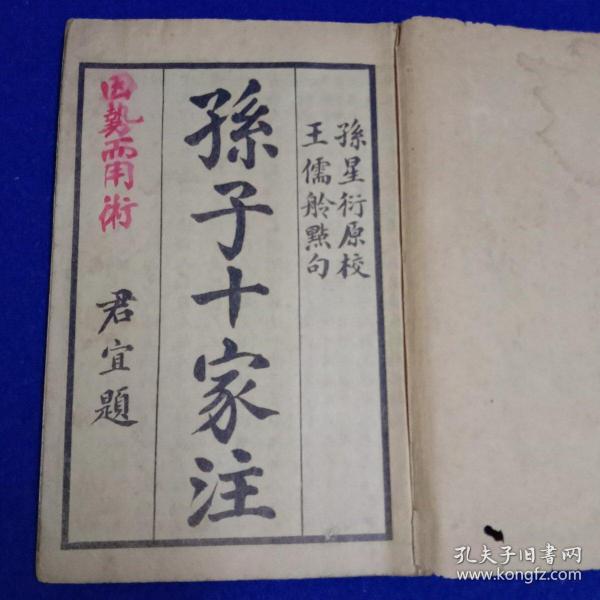 孫星衍原校
王儒舲點句
孫子十家注
因勢而用術
君宜題
孔夫子旧書网
www.kongfz.com